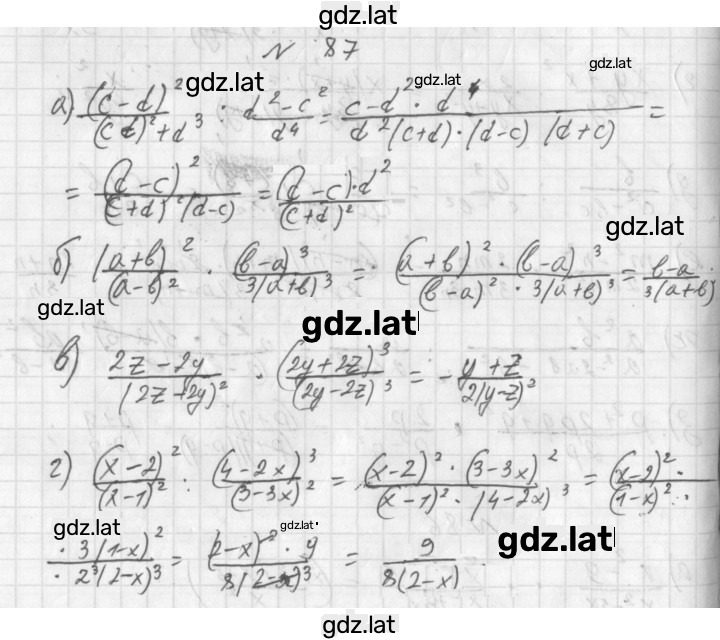 gdz.lat
№ 87
gdz.lat
gdz.lat gdz.lat
а) (c-d)²/(cd)²+d³ : d²-c²/d⁴ = c-d² · d⁴/d²(c+d)·(d-c) (d+c) =
= (d-c)²/(c+d)²(d-c) = (d-c)·d²/(c+d)²
gdz.lat
б) (a+b)²/(a-b)² · (b-a)³/3(a+b)³ = (a+b)² · (b-a)³/(b-a)² · 3(a+b)³ = b-a/3(a+b)
gdz.lat
gdz.lat
в) 2z-2y/(2z+2y)² · (2y+2z)³/(2y-2z)³ = - y+z/2(y-z)²
г) (x-2)²/(x-1)² : (4-2x)³/(3-3x)² = (x-2)² · (3-3x)²/(x-1)² · (4-2x)³ = (x-2)² ·/(1-x)² ·
gdz.lat gdz.lat gdz.lat
· 3(1-x)²/· 2³(2-x)³ = (2-x)² · 9/8(2-x)³ = 9/8(2-x)
gdz.lat